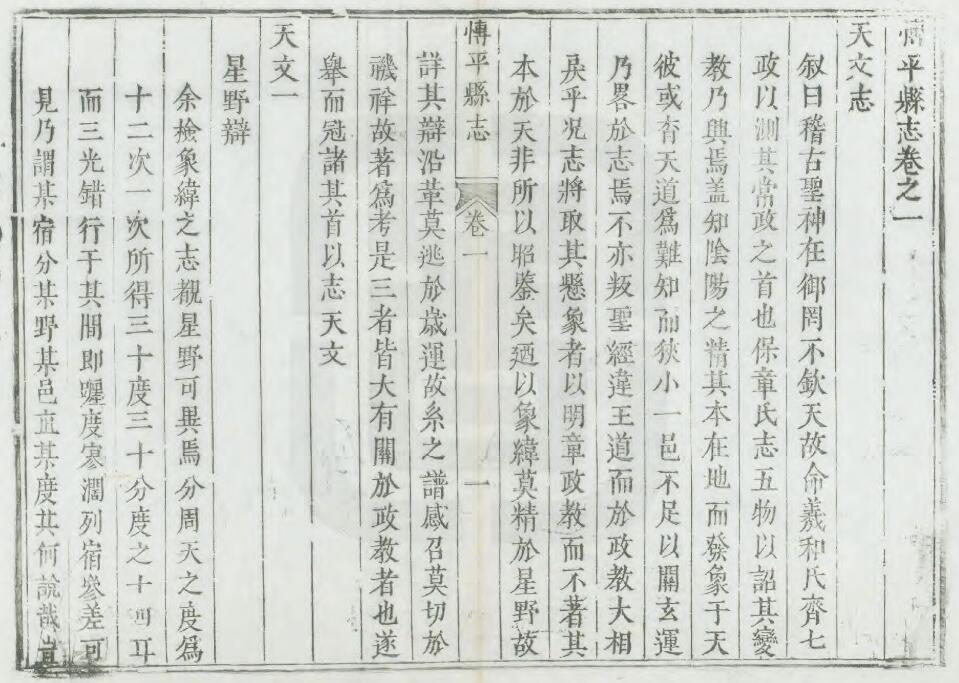 博平縣志卷之一
天文志
叙曰稽古聖神在御罔不欽天故命羲和氏齊七
政以測其常政之首也保章氏志五物以詔其變
教乃興焉盖知陰陽之精其本在地而發象于天
彼或有天道爲難知而狹小一邑不足以關玄運
乃畧於志焉不亦叛聖經違王道而於政教大相
戾乎况志將取其懸象者以明章政教而不著其
本於天非所以昭鑒矣廼以象緯莫精於星野故
博平縣志
卷一
一
詳其辯沿革莫逃於歲運故系之譜感召莫切於
禨祥故著爲考是三者皆大有關於政教者也遂
舉而冠諸其首以志天文
天文一
星野辯
余撿象緯之志覩星野可異焉分周天之度爲
十二次一次所得三十度三十分度之十四耳
而三光錯行于其間即躔度寥濶列宿參差可
見乃謂某宿分某野某邑直某度其何說哉豈